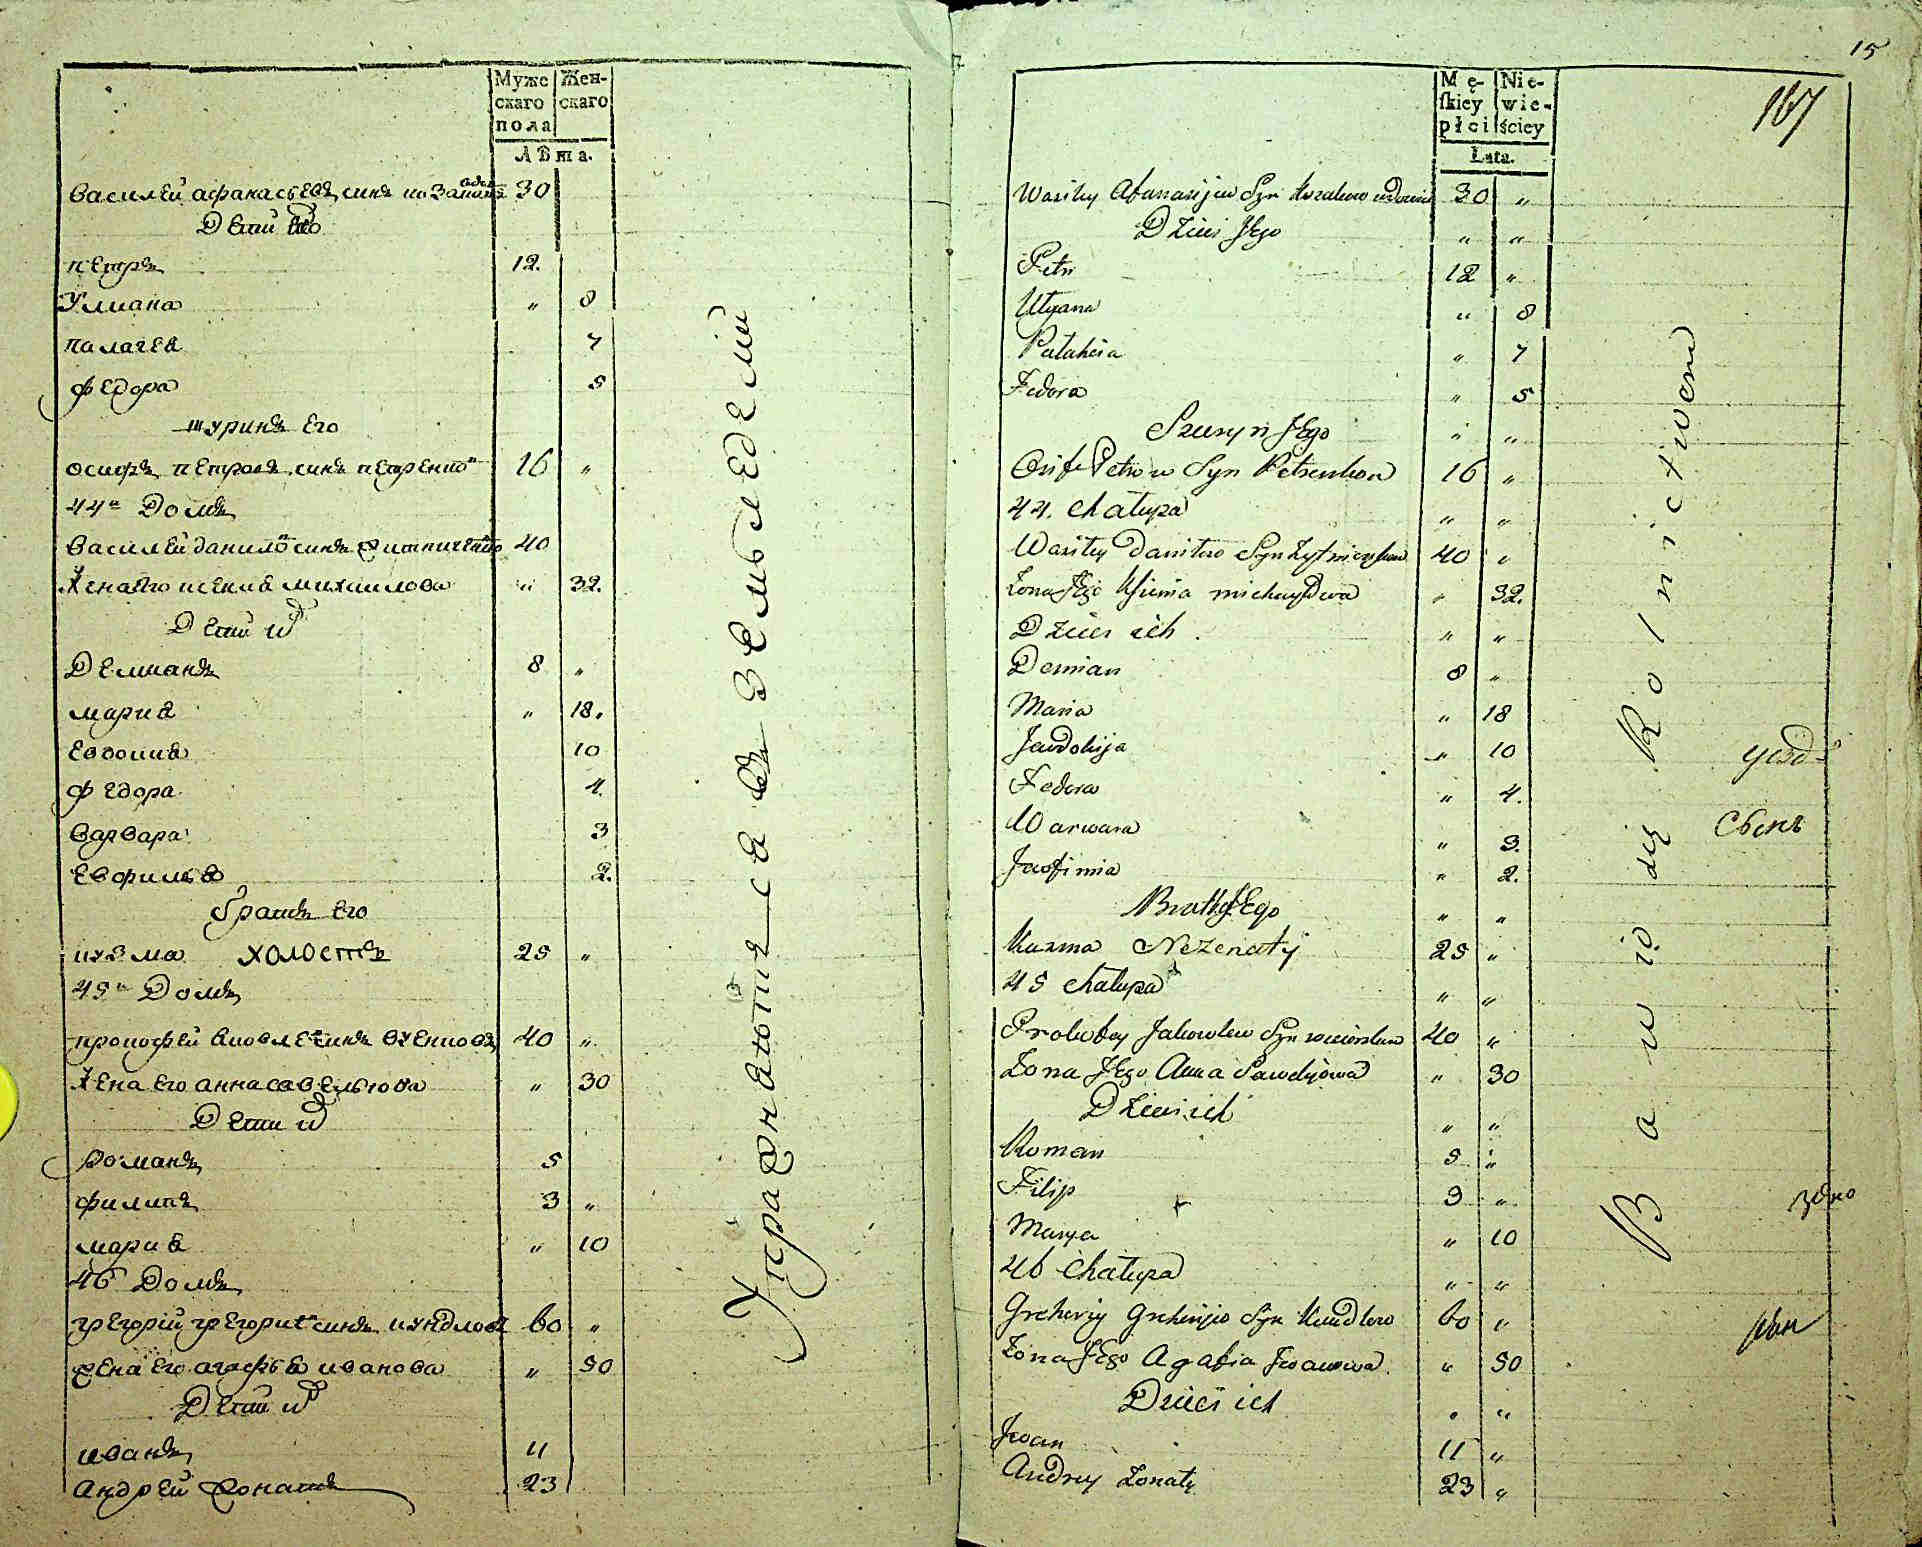 Муже скаго пола
Жен- скаго
Лѣта.
Василей афанасьевъ синъ 30
Дети его
петръ 12.
Улиана " 8
палагея 7
федора 5
шуринъ его
осифъ петровъ синъ петренко 16 "
44й Домъ
Василей данило синъ 40
Жена его ксения михаилова " 32.
Дети их
Демианъ 8 "
мария " 18.
Евдокия 10
федора 4.
варвара 3
Евфимья 2.
братъ его
кузма холостъ 25 "
45й Домъ
прокофей яковлевъ синъ 40 "
Жена его анна савельтова " 30
Дети их
романъ 5
филипъ 3 "
мария " 10
46 Домъ
грегорий грегорие синъ кундловъ 60 "
жена его агафья иванова " 50
Дети их
иванъ 11
Андрей жонатъ 23
Упражняются въ земледелии
15
167
Mę- skiey płci
Nie- wie- ściey
Lata.
Wasiley Afanasijew Syn 30 "
Dzieci Jego " "
Petr 12 "
Ulyana " 8
Palaheia " 7
Fedora " 5
Szuryn Jego " "
Osif Petrow Syn Petrenkow 16 "
44. Chałupa " "
Wasiley Daniłow Syn 40 "
Żona Jego Ksienia michayłowa " 32.
Dzieci ich " "
Demian 8 "
Maria " 18
Jewdokija " 10
Fedora " 4.
Warwara " 3.
Jewfimia " 2.
Brat Jego " "
Kuzma Nezenaty 25 "
45 Chałupa " "
Prokofey Jakowlew Syn 40 "
Żona Jego Anna Sawelijowa " 30
Dzieci ich " "
Roman 5 "
Filip 3 "
Marya " 10
46 Chałupa " "
Grehoriy Grehorjew Syn Kundlow 60 "
Żona Jego Agafia Iwanowa " 50
Dzieci ich " "
Iwan 11 "
Andrey Żonaty 23 "
Bawią się Rolnictwem